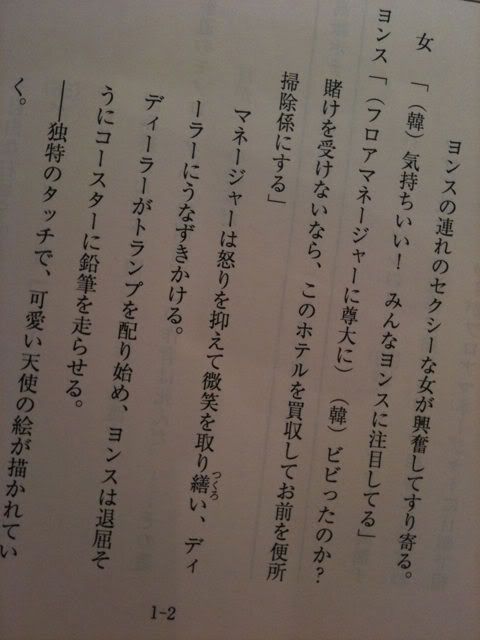 ヨンスの連れのセクシーな女が興奮してすり寄る。
女　「（韓）気持ちいい！　みんなヨンスに注目してる」
ヨンス「（フロアマネージャーに尊大に）（韓）ビビったのか？
賭けを受けないなら、このホテルを買収してお前を便所
掃除係にする」
マネージャーは怒りを抑えて微笑を取り繕い、ディ
つくろ
ーラーにうなずきかける。
ディーラーがトランプを配り始め、ヨンスは退屈そ
うにコースターに鉛筆を走らせる。
──独特のタッチで、可愛い天使の絵が描かれてい
く。
1-2